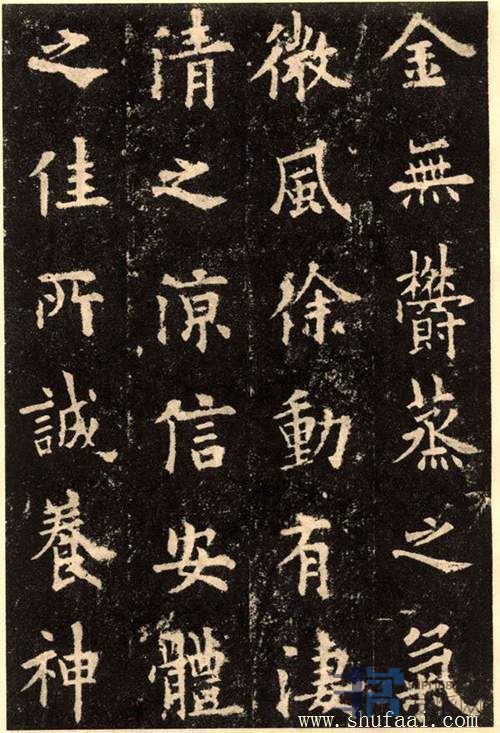 金無鬱蒸之氣
微風徐動有淒
清之涼信安體
之佳所誠養神
www.shufaai.com